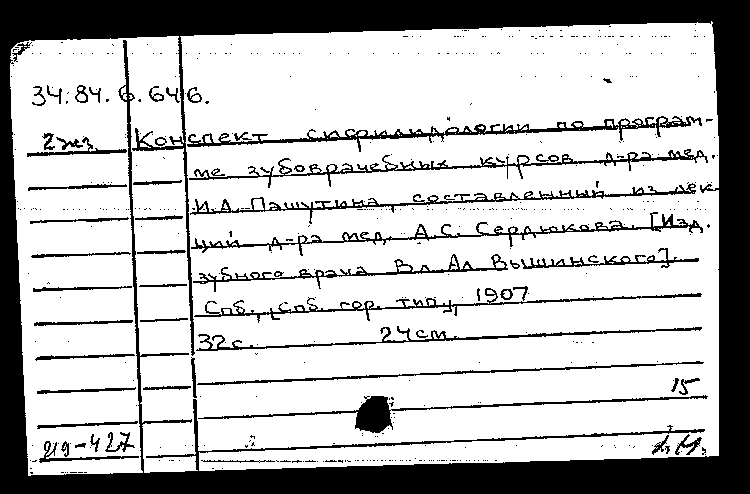 34.84.6.646.
2 экз Конспект сифилидологии по програм-
ме зубоврачебных курсов д-ра мед.
И.А. Пашутина, составленный из лек-
ций д-ра мед. А.С. Сердюкова. [Изд.
зубного врача Вл. Ал. Вышинского].
Спб., [Спб. гор. тип.], 1907
32 с. 24 см.
15
-427